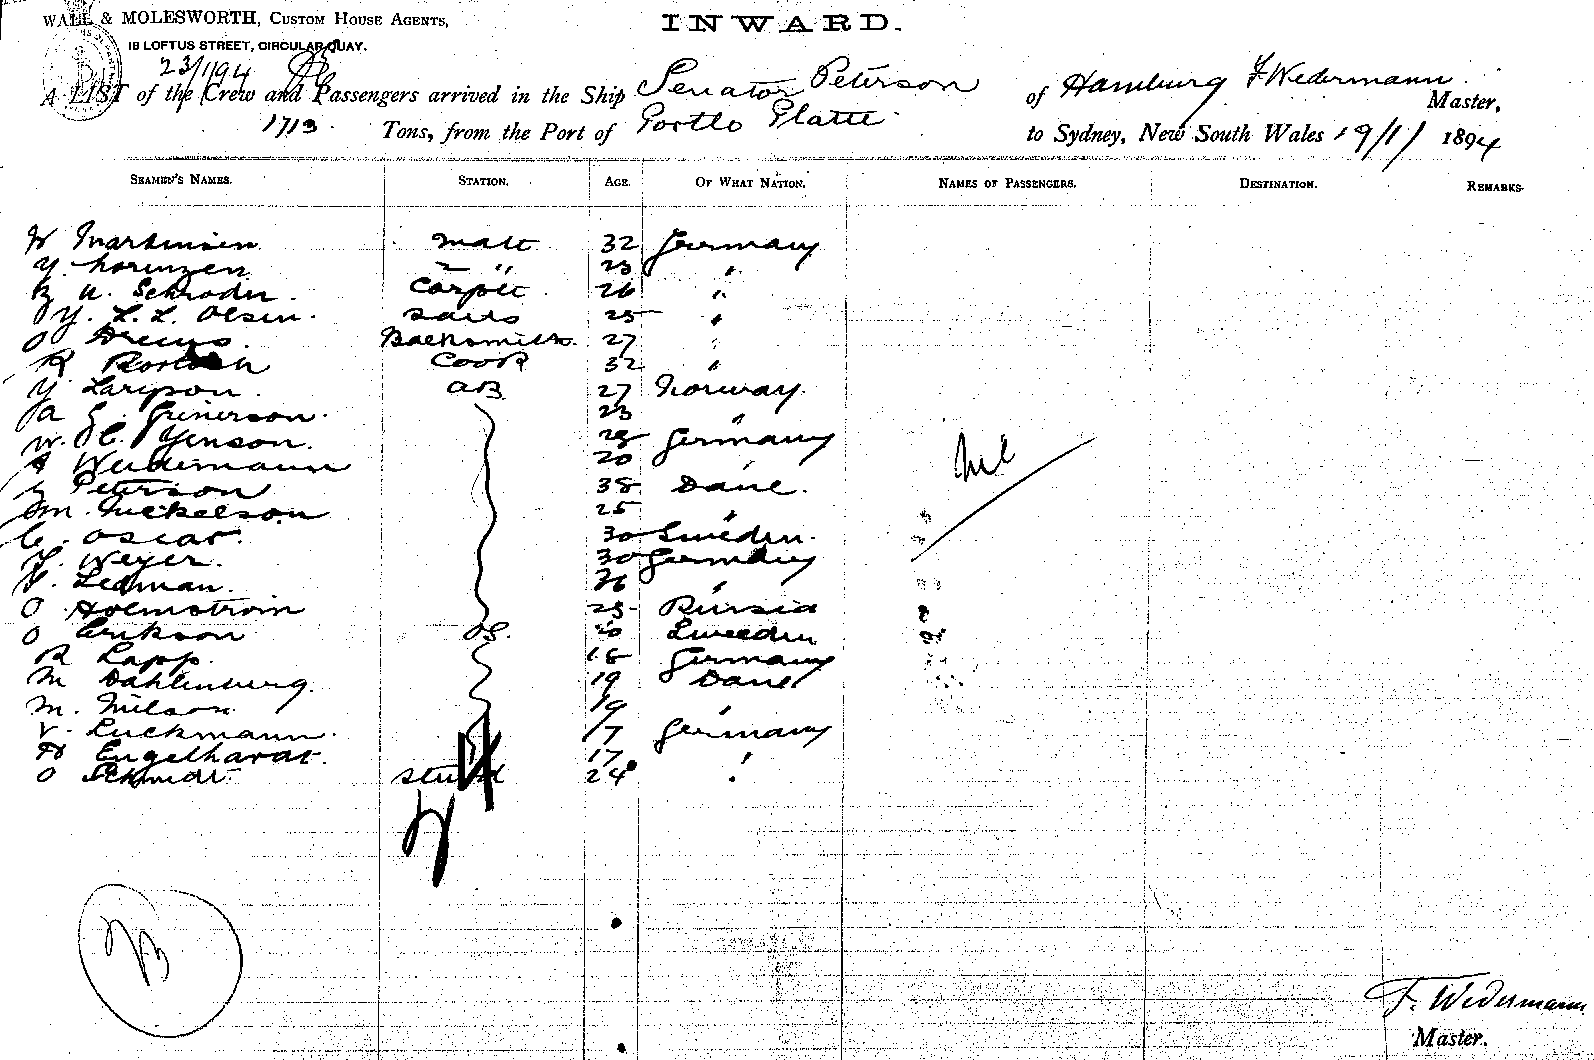 WALL & MOLESWORTH, CUSTOM HOUSE AGENTS,
INWARD.
18 LOFTUS STREET, CIRCULAR QUAY.
23/1/94
A LIST of the Crew and Passengers arrived in the Ship Senator Peterson of Hamburg F Wedermann Master,
1713 Tons, from the Port of Portlo Platte to Sydney, New South Wales 19/1/ 1894
SEAMEN'S NAMES. STATION. AGE. OF WHAT NATION. NAMES OF PASSENGERS. DESTINATION. REMARKS.
W Martinsen mate 32 Germany
Y. Lorenzen 2 " 23 "
H. Schroder. Carptr 26 "
Y. L. L. Olsen. Sails 25 "
O Drews. Backsmith. 27 "
R Cook 32 "
Y Larsson AB 27 Norway
A G. Grinerson. 23 "
W. C. Yenson. 28 Germany
A Weidemann 20 "
Peterson 38 Dane.
M. Nickelson 25 "
C. Oscar. 30 Sweden.
H. Weyer. 30 Germany
F. Ledman. 36 "
O Holmstroin 25 Russia
O Erikson OS. 20 Sweeden
R Lapp. 18 Germany
M Dahlenburg. 19 Dane
M. Nielson. 19 "
V. Luckmann. 17 Germany
H Engelhardt. 17 "
O Schmidt 24 "
Nil
F. Wedermann
Master.